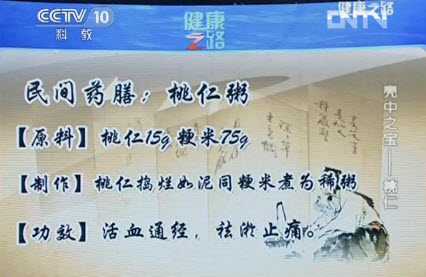 CCTV 10
科教
健康之路
健康之路
民间药膳：桃仁粥
【原料】桃仁15g 粳米75g
【制作】桃仁捣烂如泥同粳米煮为稀粥
【功效】活血通经，祛淤止痛。
壳中之宝——桃仁